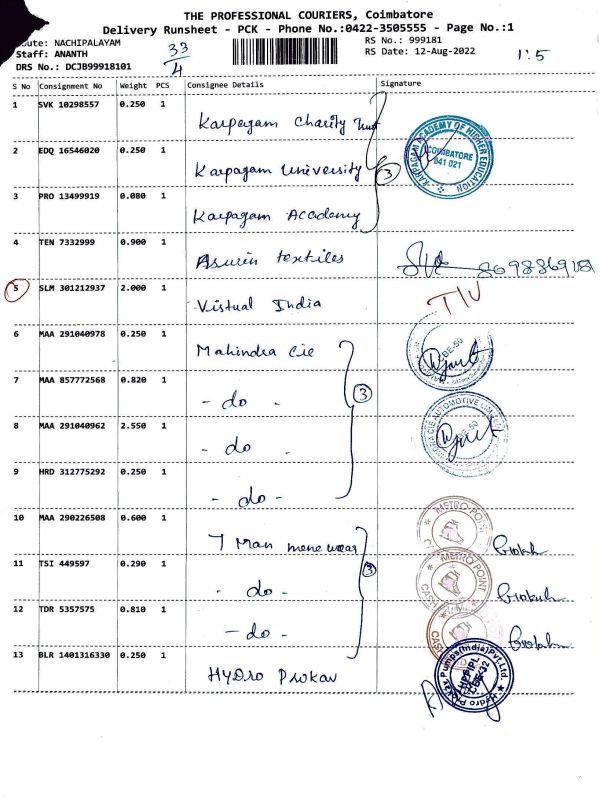 THE PROFESSIONAL COURIERS, Coimbatore
Delivery Runsheet - PCK - Phone No.:0422-3505555 - Page No.:1
oute: NACHIPALAYAM
Staff: ANANTH
DRS No.: DCJB99918101
33/4
RS No.: 999181
RS Date: 12-Aug-2022
1:5
S No Consignment No Weight PCS Consignee Details Signature
1 SVK 10298557 0.250 1 Karpagam Charity Trust
KARPAGAM ACADEMY OF HIGHER EDUCATION
COIMBATORE
641 021
2 EDQ 16546020 0.250 1 Karpagam University
3
3 PRO 13499919 0.080 1 Karpagam Academy
4 TEN 7332999 0.900 1 Asurin textiles
5 SLM 301212937 2.000 1 Vistual India
6 MAA 291040978 0.250 1 Mahindra Cie
7 MAA 857772568 0.820 1 - do -
3
8 MAA 291040962 2.550 1 - do -
9 HRD 312775292 0.250 1 - do -
10 MAA 290226508 0.600 1 T Man mens wear
METRO POINT
11 TSI 449597 0.290 1 - do -
3
METRO POINT
CASH
12 TDR 5357575 0.810 1 - do -
13 BLR 1401316330 0.250 1 Hydro Prokav
Hydro Prokav Pumps(India)Pvt.Ltd.
HPPIPL
CBE-32